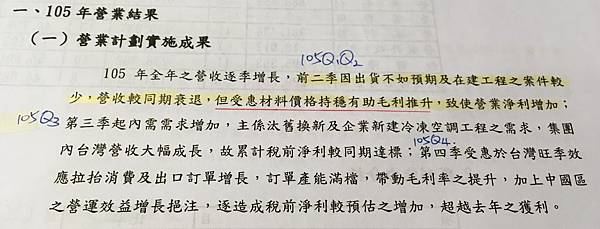 一、105年營業結果
（一）營業計劃實施成果
105Q1Q2
105 年全年之營收逐季增長，前二季因出貨不如預期及在建工程之案件較
少，營收較同期衰退，但受惠材料價格持穩有助毛利推升，致使營業淨利增加；
105Q3
第三季起內需需求增加，主係汰舊換新及企業新建冷凍空調工程之需求，集團
105Q4.
內台灣營收大幅成長，故累計稅前淨利較同期達標；第四季受惠於台灣旺季效
應拉抬消費及出口訂單增長，訂單產能滿檔，帶動毛利率之提升，加上中國區
之營運效益增長挹注，逐造成稅前淨利較預估之增加，超越去年之獲利。